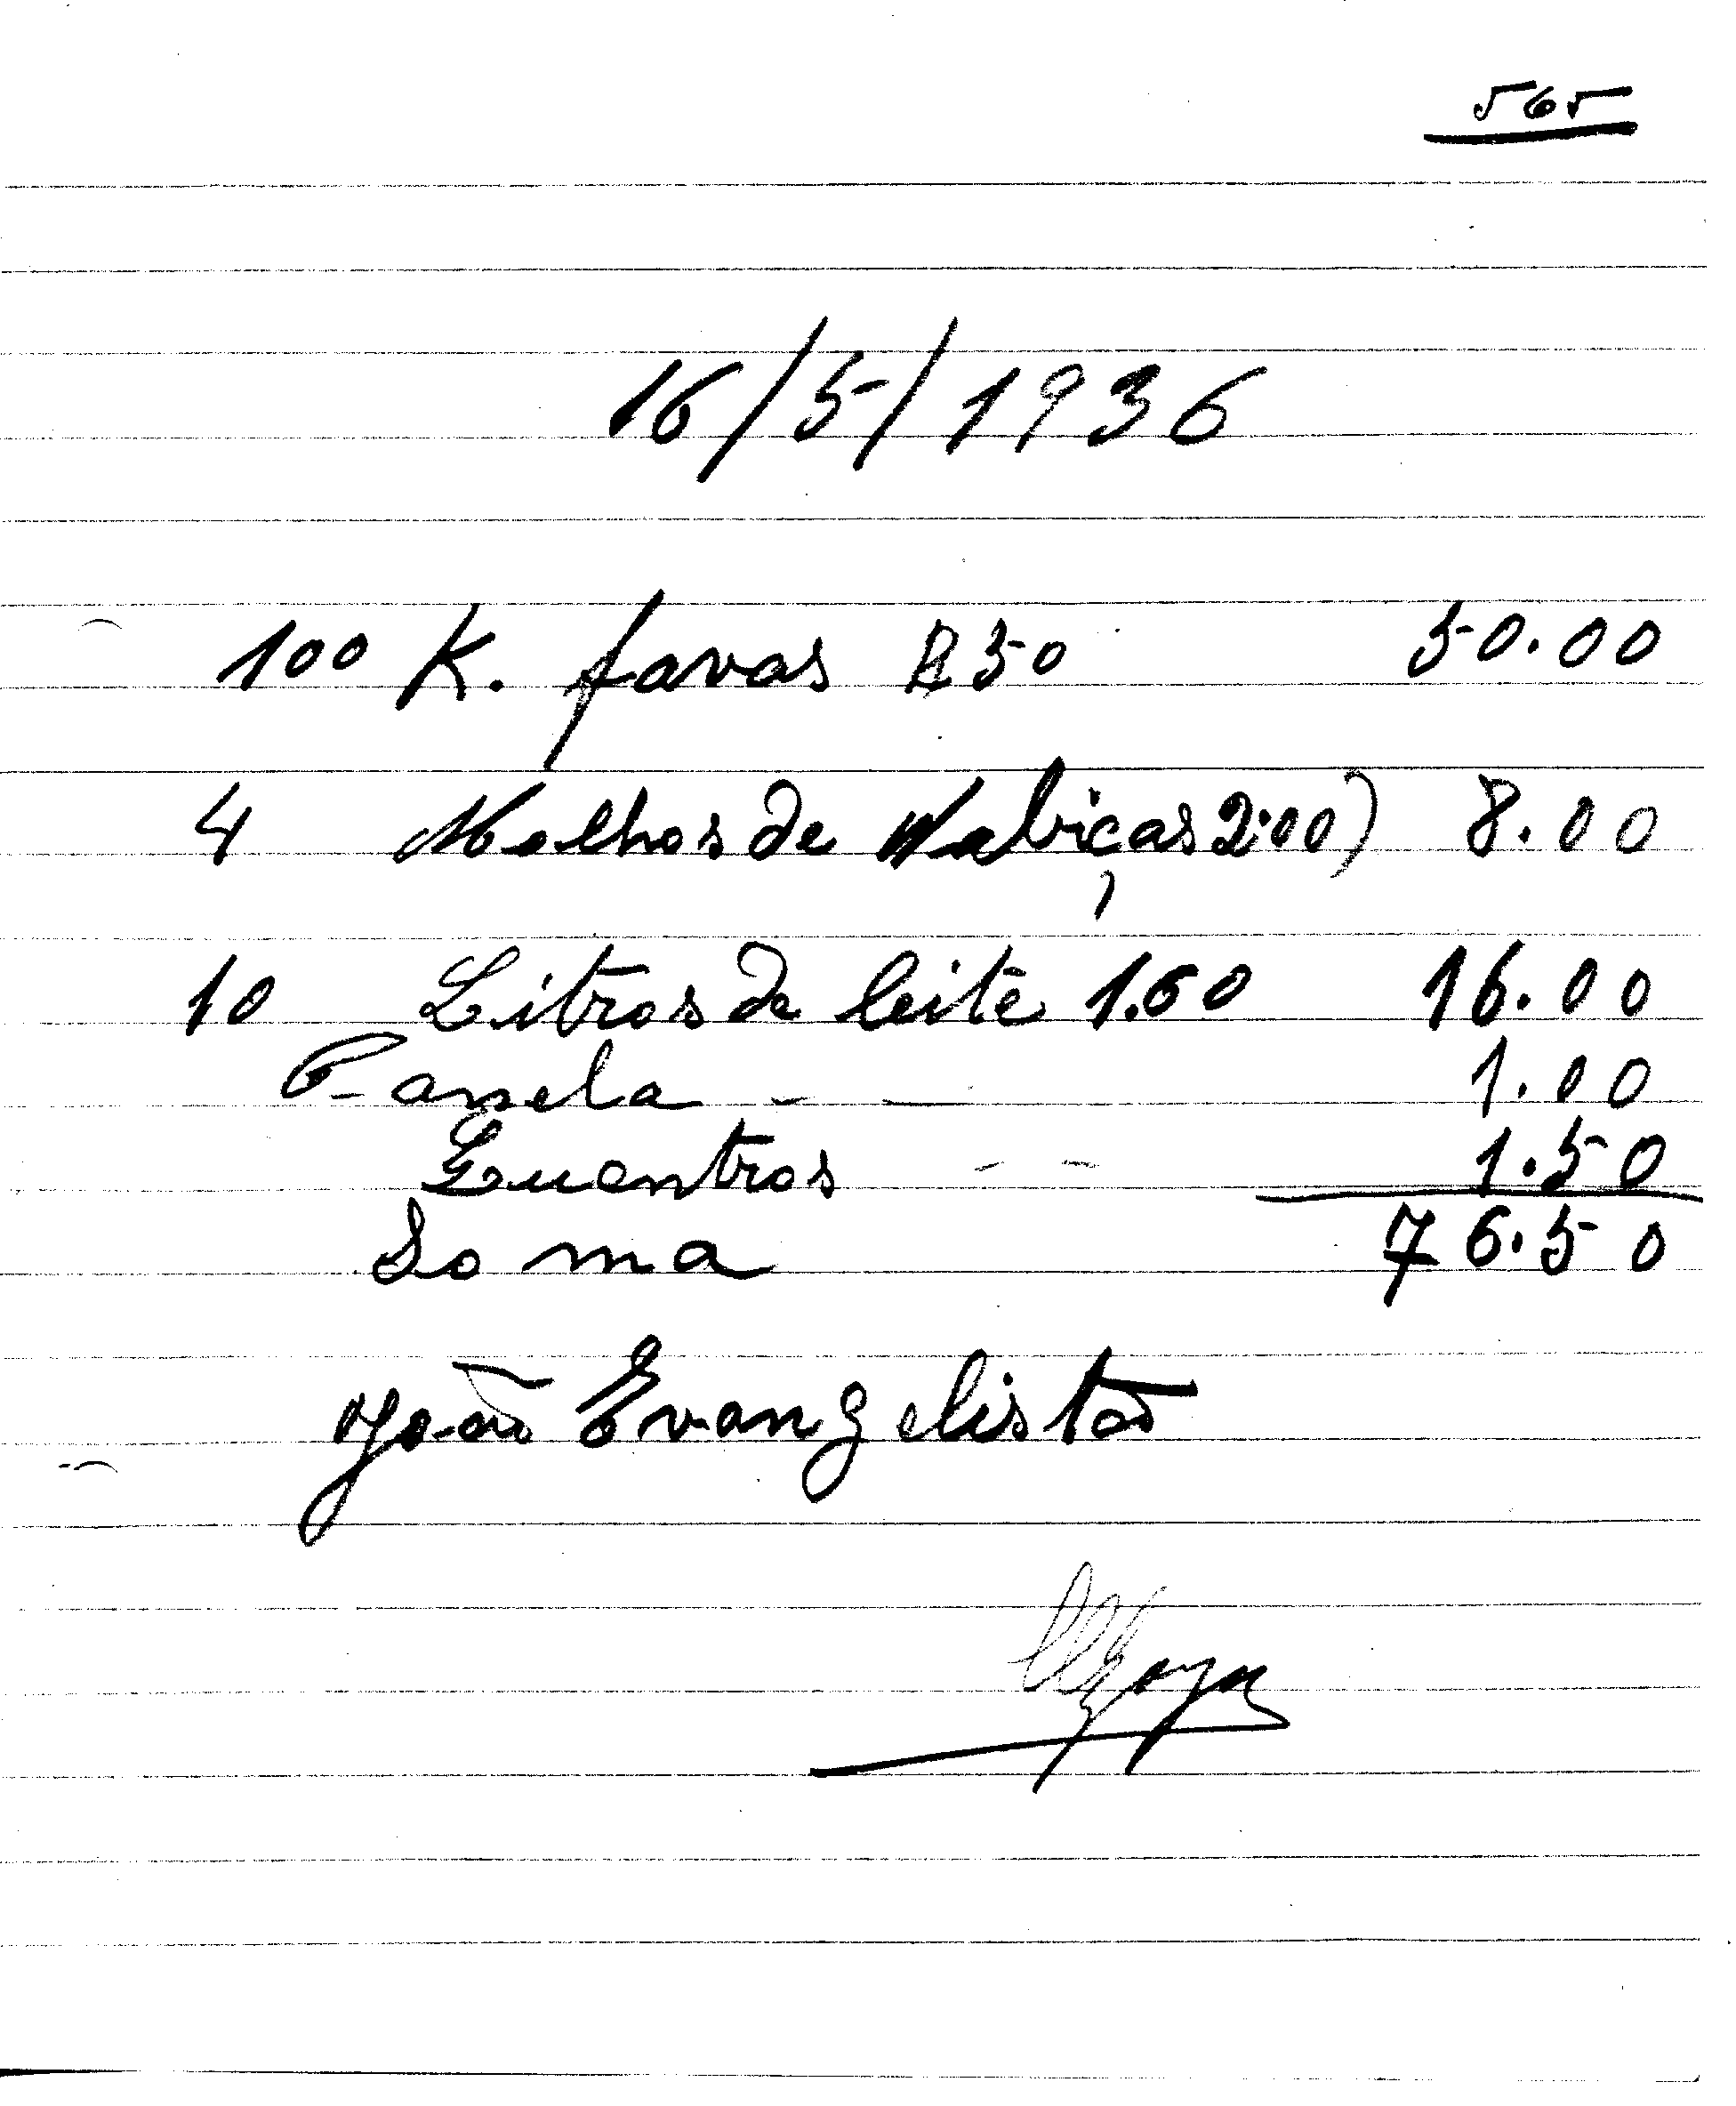 565
16/5/1936
100 K. favas R 50 50.00
4 Molhos de Nabiças 2:00) 8.00
10 Litros de leite 1.60 16.00
Panela - - 1.00
Cuentros - - 1.50
Soma 76.50
João Evangelista